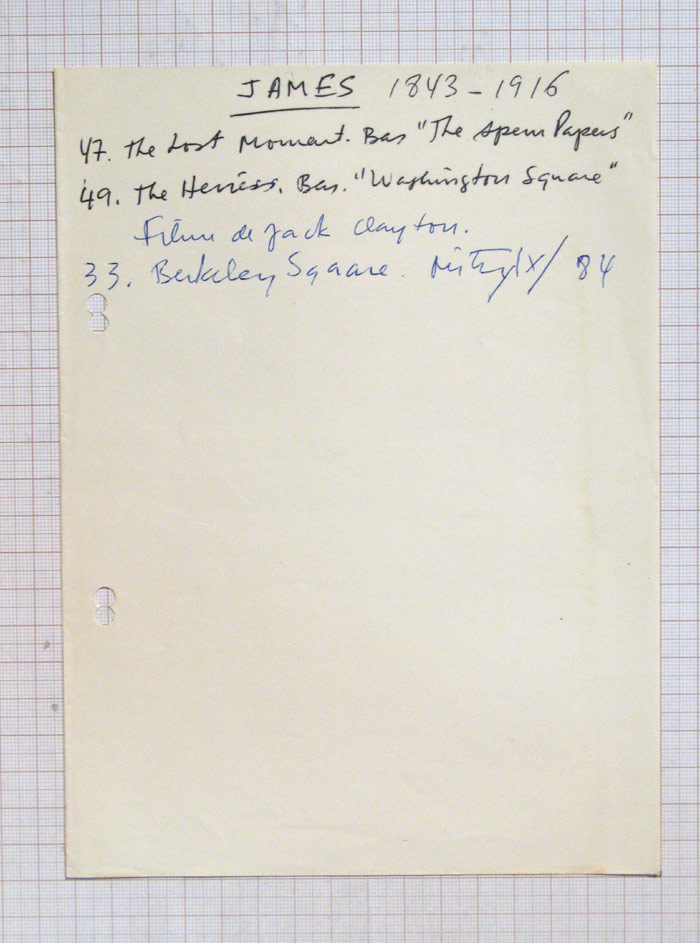 JAMES 1843-1916
47. The Lost Moment. Bas "The Aspern Papers"
49. The Heiress. Bas. "Washington Square"
Filme de Jack Clayton.
33. Berkeley Square. / 84